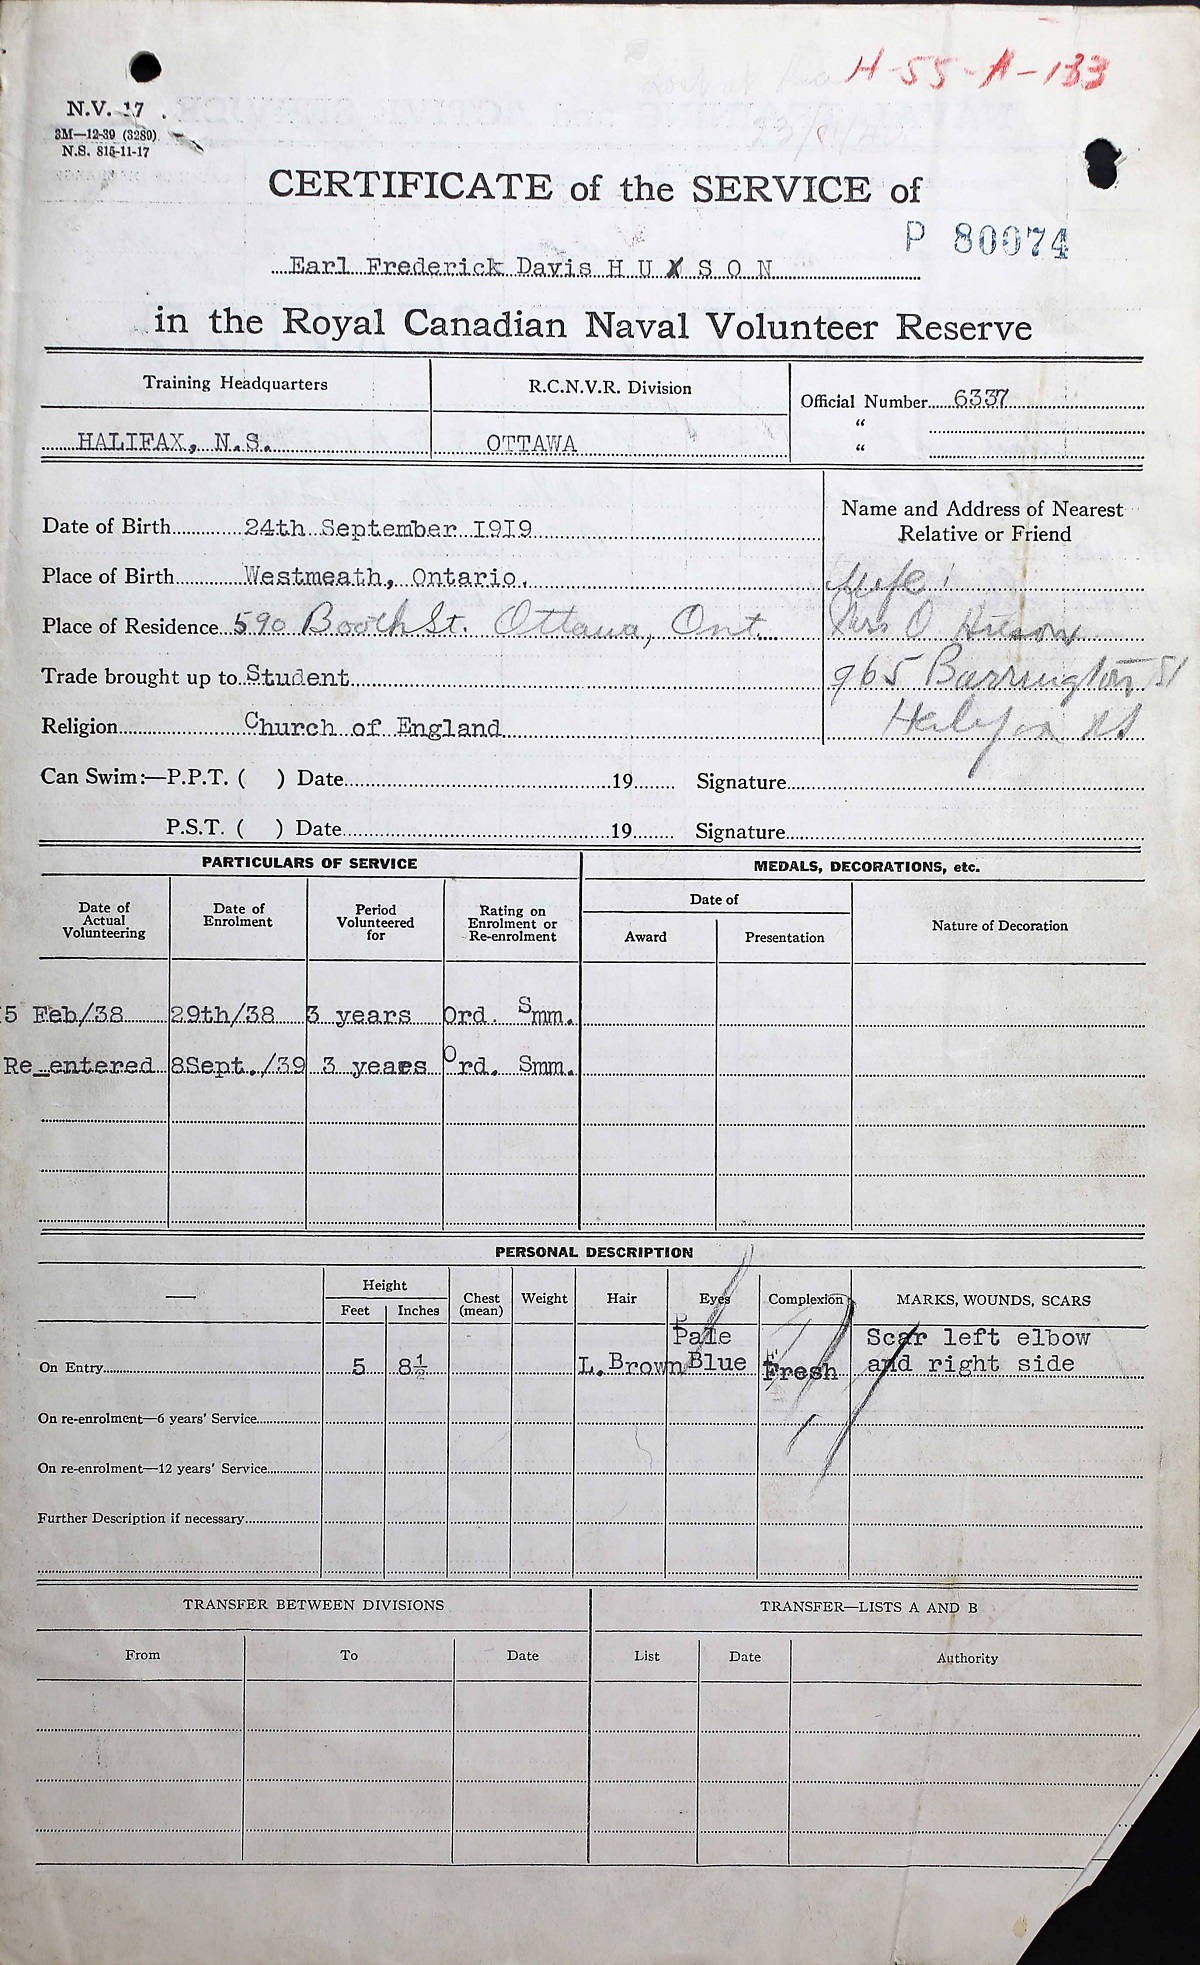 H-55-A-133
N.V. 17
3M—12-39 (3289)
N.S. 815-11-17
CERTIFICATE of the SERVICE of
P 80074
Earl Frederick Davis H U X S O N
in the Royal Canadian Naval Volunteer Reserve
Training Headquarters
R.C.N.V.R. Division
Official Number 6337
"
"
HALIFAX, N.S.
OTTAWA
Name and Address of Nearest
Relative or Friend
Date of Birth 24th September 1919
Place of Birth Westmeath, Ontario.
Wife!
Place of Residence 590 Booth St. Ottawa, Ont.
Mrs O
Trade brought up to Student
965 Barrington St
Religion Church of England
Halifax NS
Can Swim:—P.P.T. ( ) Date 19 Signature
P.S.T. ( ) Date 19 Signature
PARTICULARS OF SERVICE
MEDALS, DECORATIONS, etc.
Date of
Actual
Volunteering
Date of
Enrolment
Period
Volunteered
for
Rating on
Enrolment or
Re-enrolment
Date of
Award
Presentation
Nature of Decoration
5 Feb/38 29th/38 3 years Ord. Smm.
Re_entered 8Sept./39 3 years Ord. Smm.
PERSONAL DESCRIPTION
Height
Feet
Inches
Chest
(mean)
Weight
Hair
Eyes
Complexion
MARKS, WOUNDS, SCARS
On Entry 5 8½ L. Brown Pale Blue Fresh Scar left elbow
and right side
On re-enrolment—6 years' Service
On re-enrolment—12 years' Service
Further Description if necessary
TRANSFER BETWEEN DIVISIONS
TRANSFER—LISTS A AND B
From
To
Date
List
Date
Authority